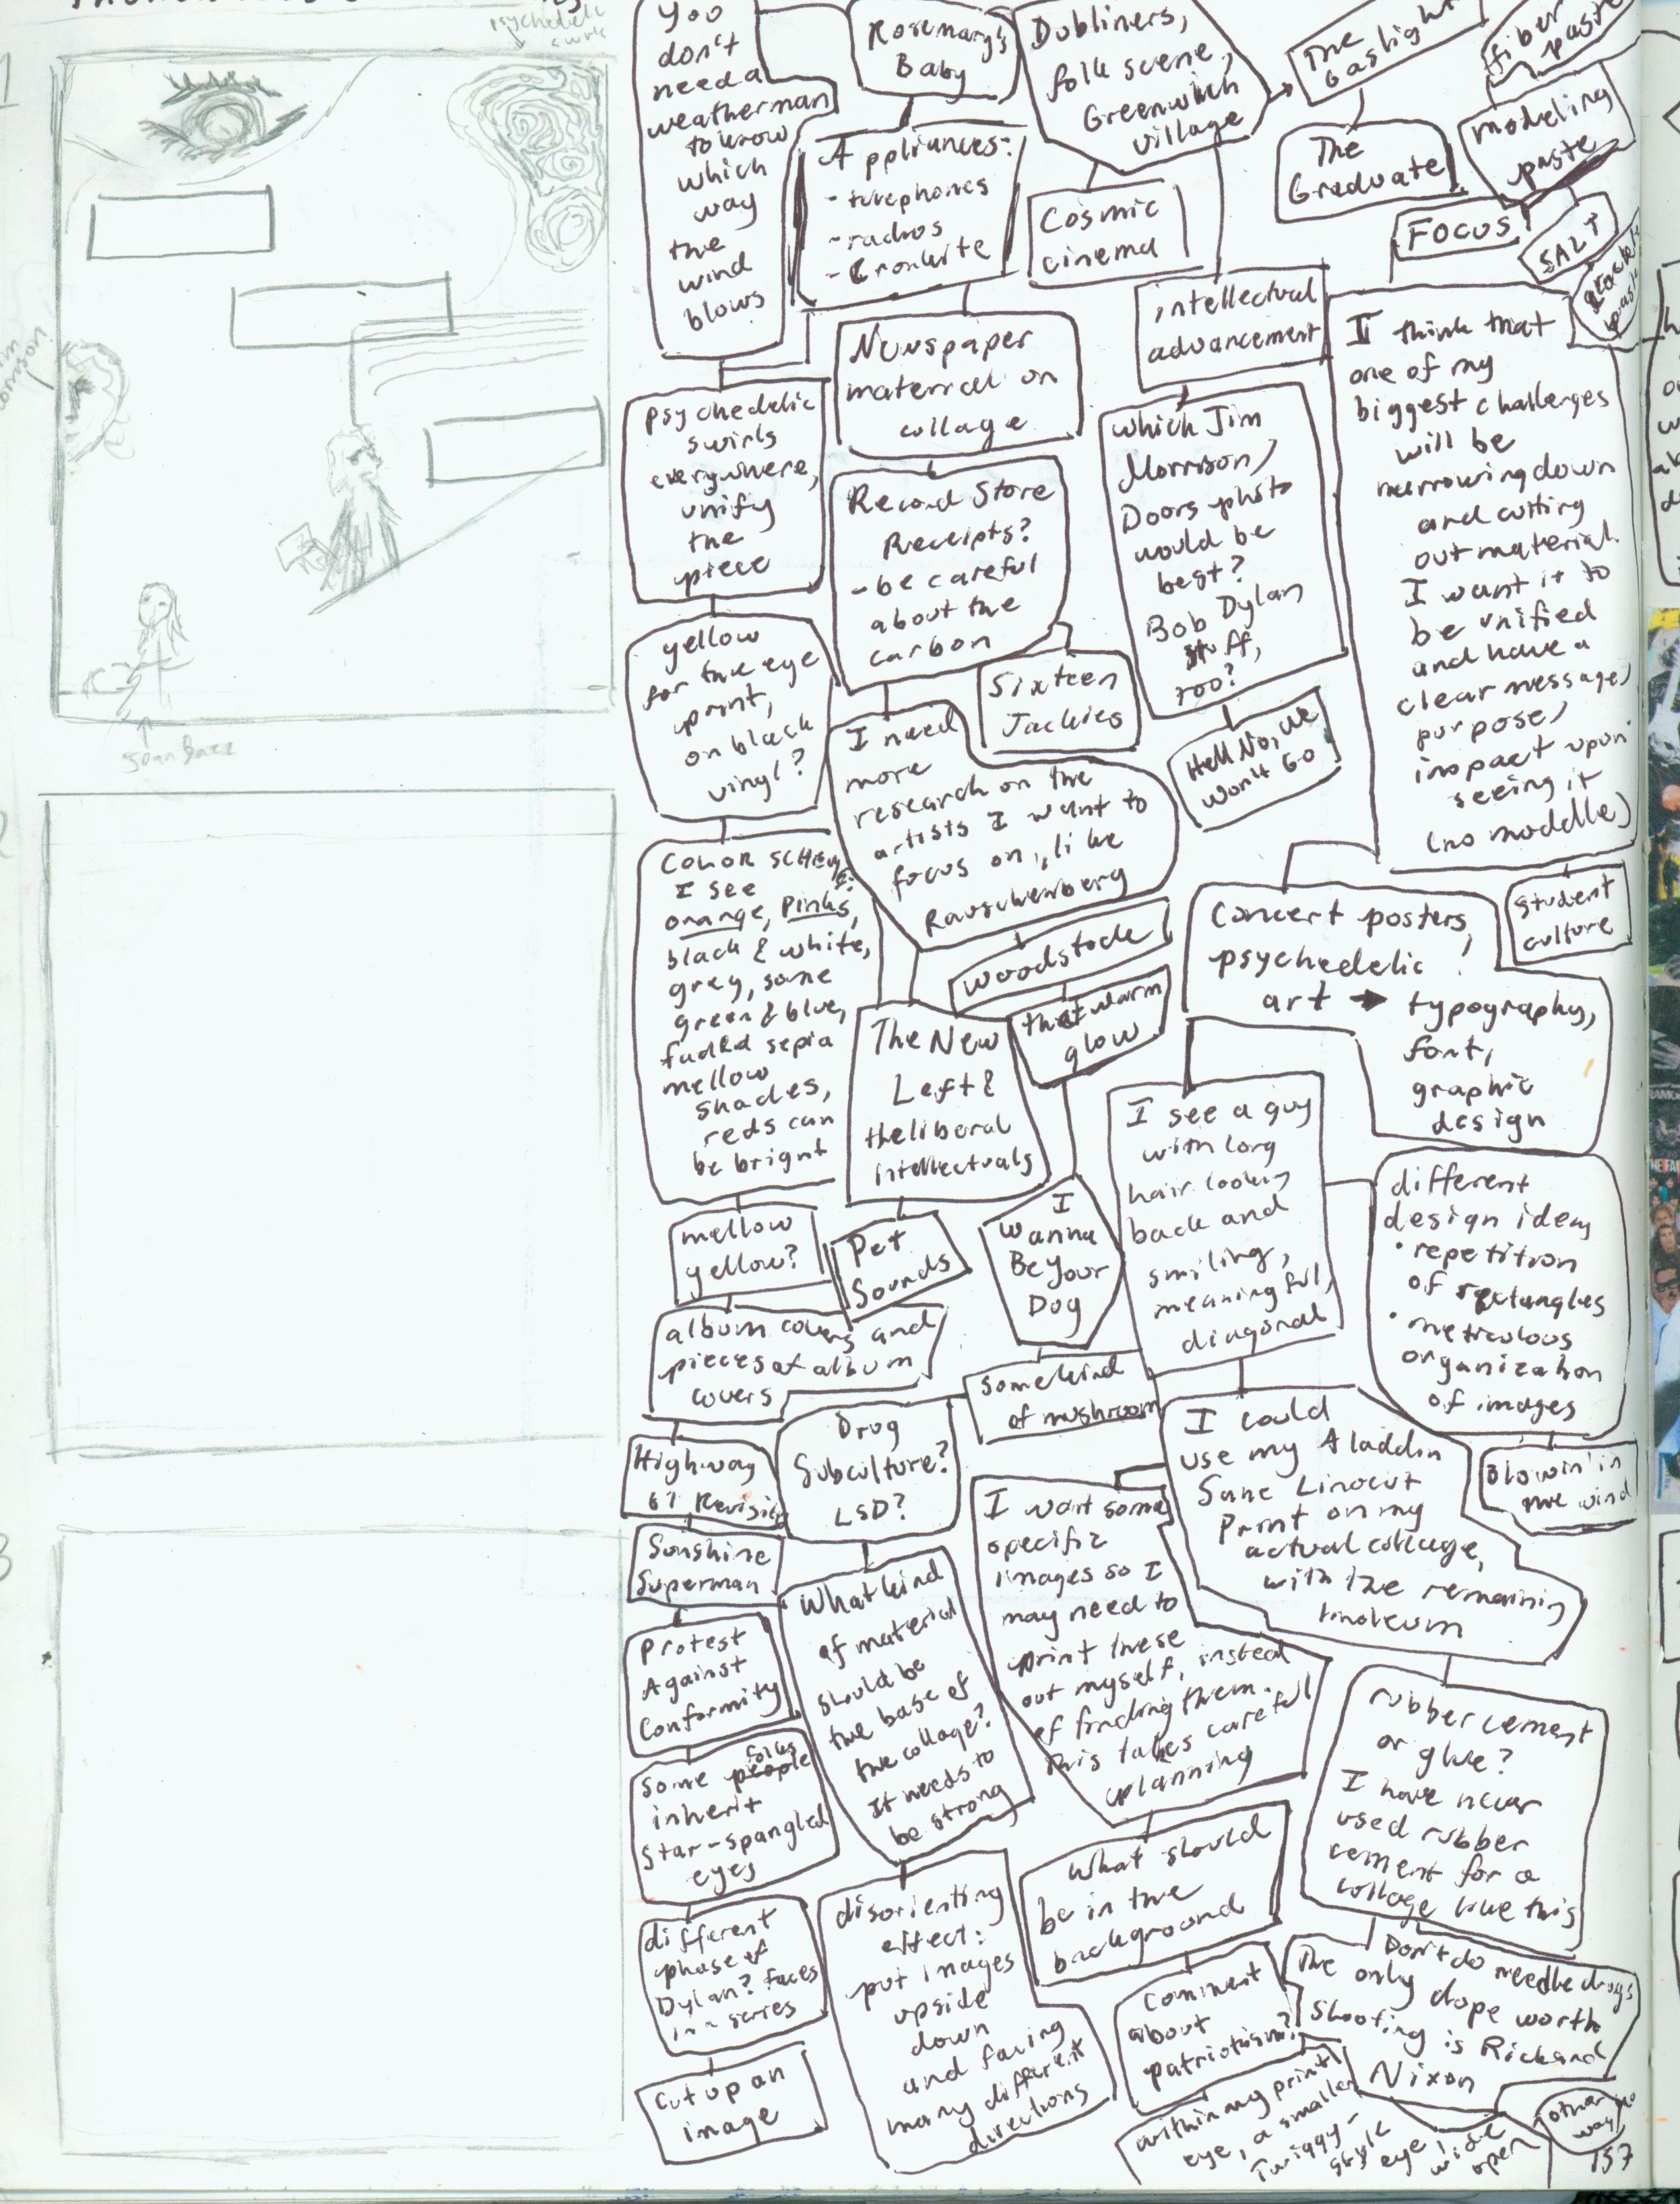 psychedelic
swirls
1
Jim
Morrison
Joan Baez
2
3
You
don't
need a
weatherman
to know
which
way
the
wind
blows
Rosemary's
Baby
Dubliners,
folk scene,
Greenwich
village
The
Gaslight
fiber
paste
modeling
paste
SALT
crackle
paste
The
Graduate
FOCUS
Appliances:
- telephones
- radios
- Cronkite
Cosmic
cinema
intellectual
advancement
Newspaper
material on
collage
psychedelic
swirls
everywhere,
unify
the
piece
Record Store
Receipts?
- be careful
about the
carbon
which Jim
Morrison,
Doors photo
would be
best?
Bob Dylan
stuff,
too?
I think that
one of my
biggest challenges
will be
narrowing down
and cutting
out material.
I want it to
be unified
and have a
clear message,
purpose,
impact upon
seeing it
(no muddle)
yellow
for the eye
print,
on black
vinyl?
Sixteen
Jackies
Hell No, We
Won't Go
I need
more
research on the
artists I want to
focus on, like
Rauschenberg
COLOR SCHEME:
I see
orange, pinks,
black & white,
grey, some
green & blue,
faded sepia
mellow
shades,
reds can
be bright
Woodstock
that warm
glow
The New
Left &
the liberal
intellectuals
Concert posters,
psychedelic
art → typography,
font,
graphic
design
student
culture
I see a guy
with long
hair looking
back and
smiling,
meaningful,
diagonal
different
design ideas
• repetition
of rectangles
• meticulous
organization
of images
mellow
yellow?
Pet
Sounds
I
Wanna
Be Your
Dog
album covers and
pieces of album
covers
some kind
of mushroom
Highway
61 Revisited
Drug
Subculture?
LSD?
I could
use my Aladdin
Sane Linocut
Print on my
actual collage,
with the remaining
linoleum
Blowin' in
the wind
Sunshine
Superman
I want some
specific
images so I
may need to
print these
out myself, instead
of finding them.
This takes careful
planning
Protest
Against
Conformity
What kind
of material
should be
the base of
the collage?
It needs to
be strong
rubber cement
or glue?
I have never
used rubber
cement for a
collage like this
Some people folks
inherit
star-spangled
eyes
What should
be in the
background
different
phase of
Dylan? faces
in a series
disorienting
effect:
put images
upside
down
and facing
many different
directions
Comment
about
patriotism?
Don't do needle drugs
The only dope worth
shooting is Richard
Nixon
cut up an
image
within my print
eye, a smaller
Twiggy-
style
eye!
wide
open
other
way
157